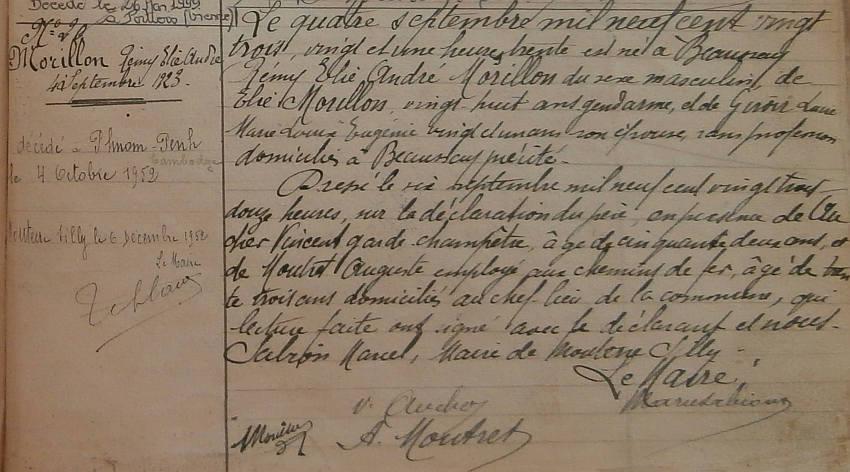 Décédé le
à Poitiers (Vienne)
N° 9
Morillon Rémy Elie André
4 Septembre 1923.
décédé à Phnom-Penh
Cambodge
le 4 Octobre 1952
Mouterre Silly le 6 Décembre 1952
Le Maire
Le quatre septembre mil neuf cent vingt
trois, vingt et une heures trente est né à Beaussay
Rémy Elie André Morillon du sexe masculin, de
Elie Morillon, vingt-huit ans gendarme, et de Girois
Marie Louise Eugénie vingt et un ans son épouse, sans profession
domiciliés à Beaussay précité.
Dressé le six septembre mil neuf cent vingt trois
douze heures, sur la déclaration du père, en présence de Au
cher Vincent garde-champêtre, âgé de cinquante deux ans, et
de Moutret Auguste employé aux chemins de fer, âgé de tren
te trois ans domiciliés au chef-lieu de la commune, qui
lecture faite ont signé avec le déclarant et nous.
Marcel, Maire de Mouterre Silly.
Le Maire,
V. Aucher
Morillon
A. Moutret